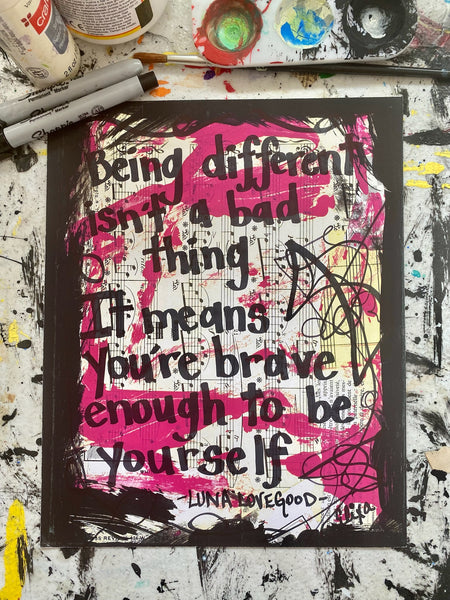 Being different
isn't a bad
thing
It means
you're brave
enough to be
yourself
-LUNA LOVEGOOD-
Sharpie